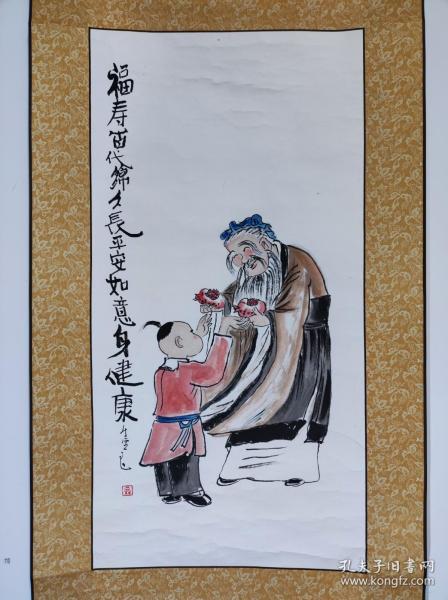 福寿苗代綿久長平安如意身健康
孔夫子旧书网
www.kongfz.com